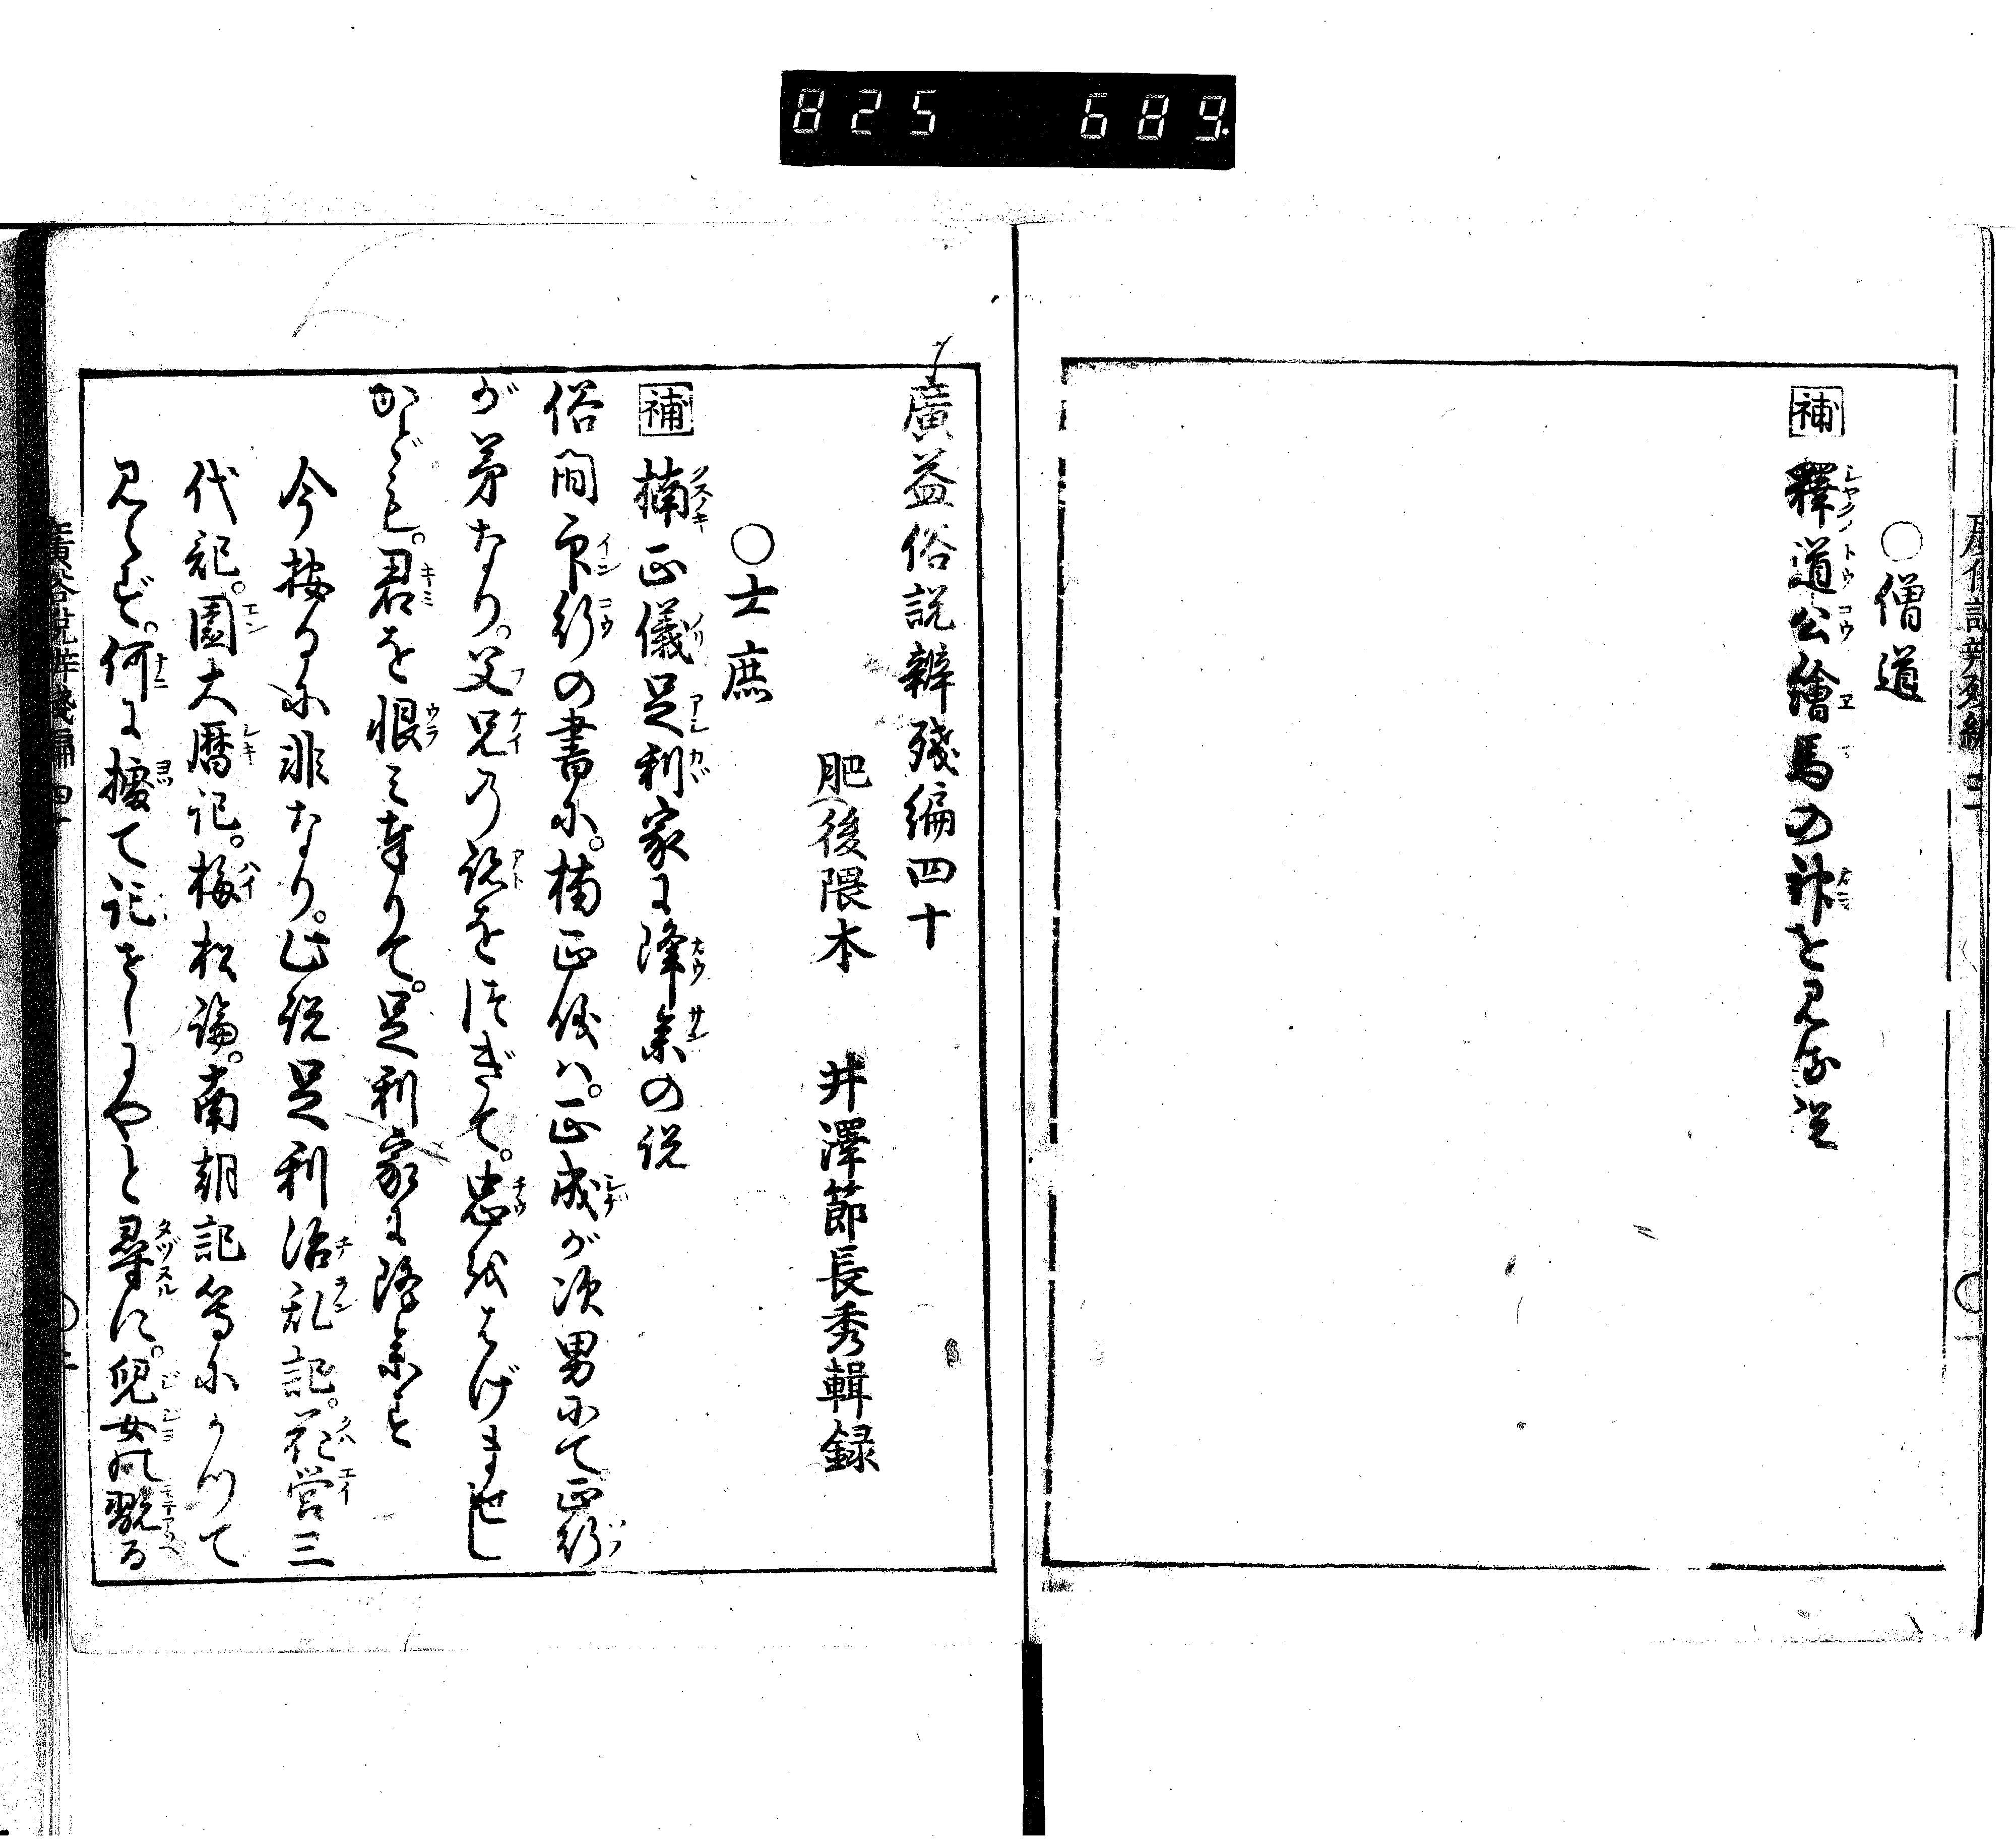 825 689
○僧道
補 釋道公繪馬の神を見る説
廣益俗説辨殘編四十
肥後隈本 井澤節長秀輯録
○士庶
補 楠正儀足利家に降参の説
俗間印行の書に。楠正儀ハ。正成が次男にて正行
が弟なり。父兄の跡をはぎて。忠をはげませし
かども。君を恨ミ奉りて。足利家に降参すと
今按るに非なり。此説足利治乱記。花営三
代記。園大暦記。梅松論。南朝記等にかつて
見えず。何に據て記せしにやと尋に。兒女の翫る